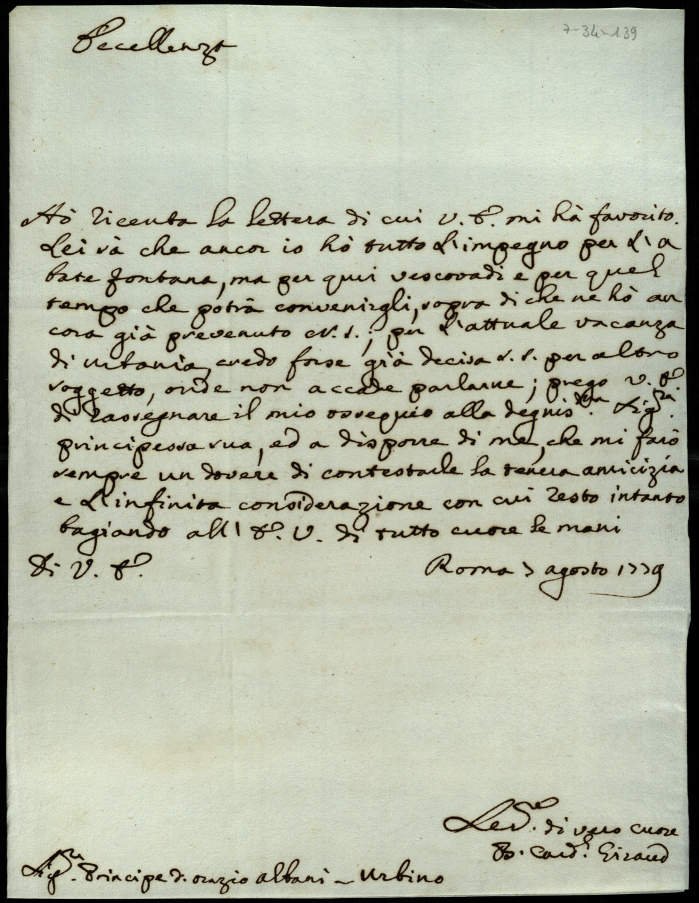 Eccellenza
7-34-139
Hò ricevuta la lettera di cui V. E. mi hà favorito.
Lei sà che ancor io hò tutto l'impegno per l'a
bate fontana, ma per qui vescovadi e per quel
tempo che potrà convenirgli, sopra di che ne hò an
cora già prevenuto N. S.; per l'attuale vacanza
di urbania, credo forse già decisa S. S. per altro
soggetto, onde non accade parlarne; prego V. E.
di rassegnare il mio ossequio alla degnis.ma Sig.ra
principessa sua, ed a disporre di me, che mi farò
sempre un dovere di contestarle la tenera amicizia
e l'infinita considerazione con cui resto intanto
bagiando all' E. V. di tutto cuore le mani
Di V. E. Roma 7 agosto 1779
di vero cuore
B. Card. Giraud
Sig.re Principe D. orazio albani - Urbino